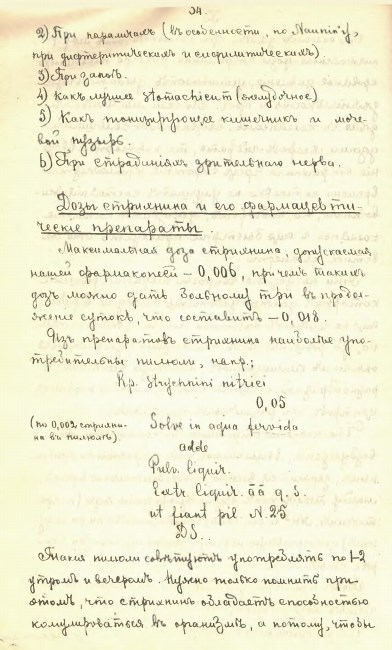 34.
2) При параличахъ (въ особенности, по Naunin'у,
при дифтеритическихъ и сифилитическихъ)
3) При запов.
4) Какъ лучшее stomachicum (желудочное)
5) Какъ тонизирующее кишечникъ и моче-
вой пузырь.
6) При страданіяхъ зрительнаго нерва.
Дозы стрихнина и его фармацевти-
ческіе препараты.
Максимальная доза стрихнина, допускаемая
нашей фармакопеей – 0,006, при чемъ такихъ
дозъ можно дать больному три въ продол-
женіе сутокъ, что составитъ – 0,018.
Изъ препаратовъ стрихнина наиболѣе упо-
требительны пилюли, напр.;
Rp. Strychnini nitrici
0,05
(по 0,002 стрихни-
на въ пилюлѣ)
Solve in aqua fervida
adde
Pulv. liquir.
Extr. liquir. āā q. s.
ut fiant pil N. 25
DS.
Такія пилюли совѣтуютъ употреблять по 1-2
утромъ и вечеромъ. Нужно только помнить при
этомъ, что стрихнинъ обладаетъ способностью
комулироваться въ организмѣ, а потому, чтобы